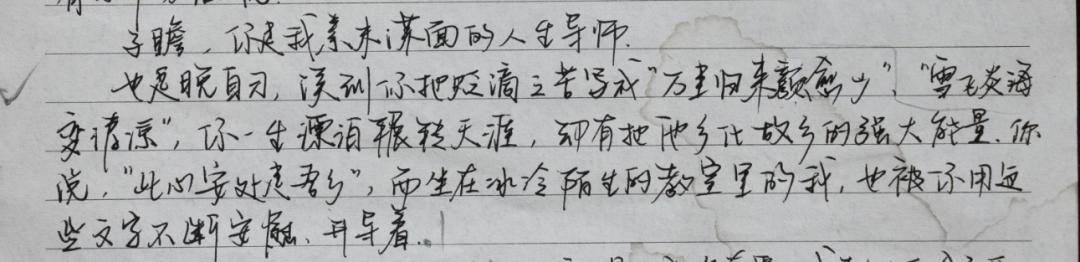 子瞻，你是我素未谋面的人生导师.
也是晚自习，读到你把贬谪之苦写成“万里归来颜愈少”、“雪飞炎海
变清凉”，你一生漂泊辗转天涯，却有把他乡比故乡的强大能量.你
说，“此心安处是吾乡”，而坐在冰冷陌生的教室里的我，也被你用这
些文字不断安慰、开导着.